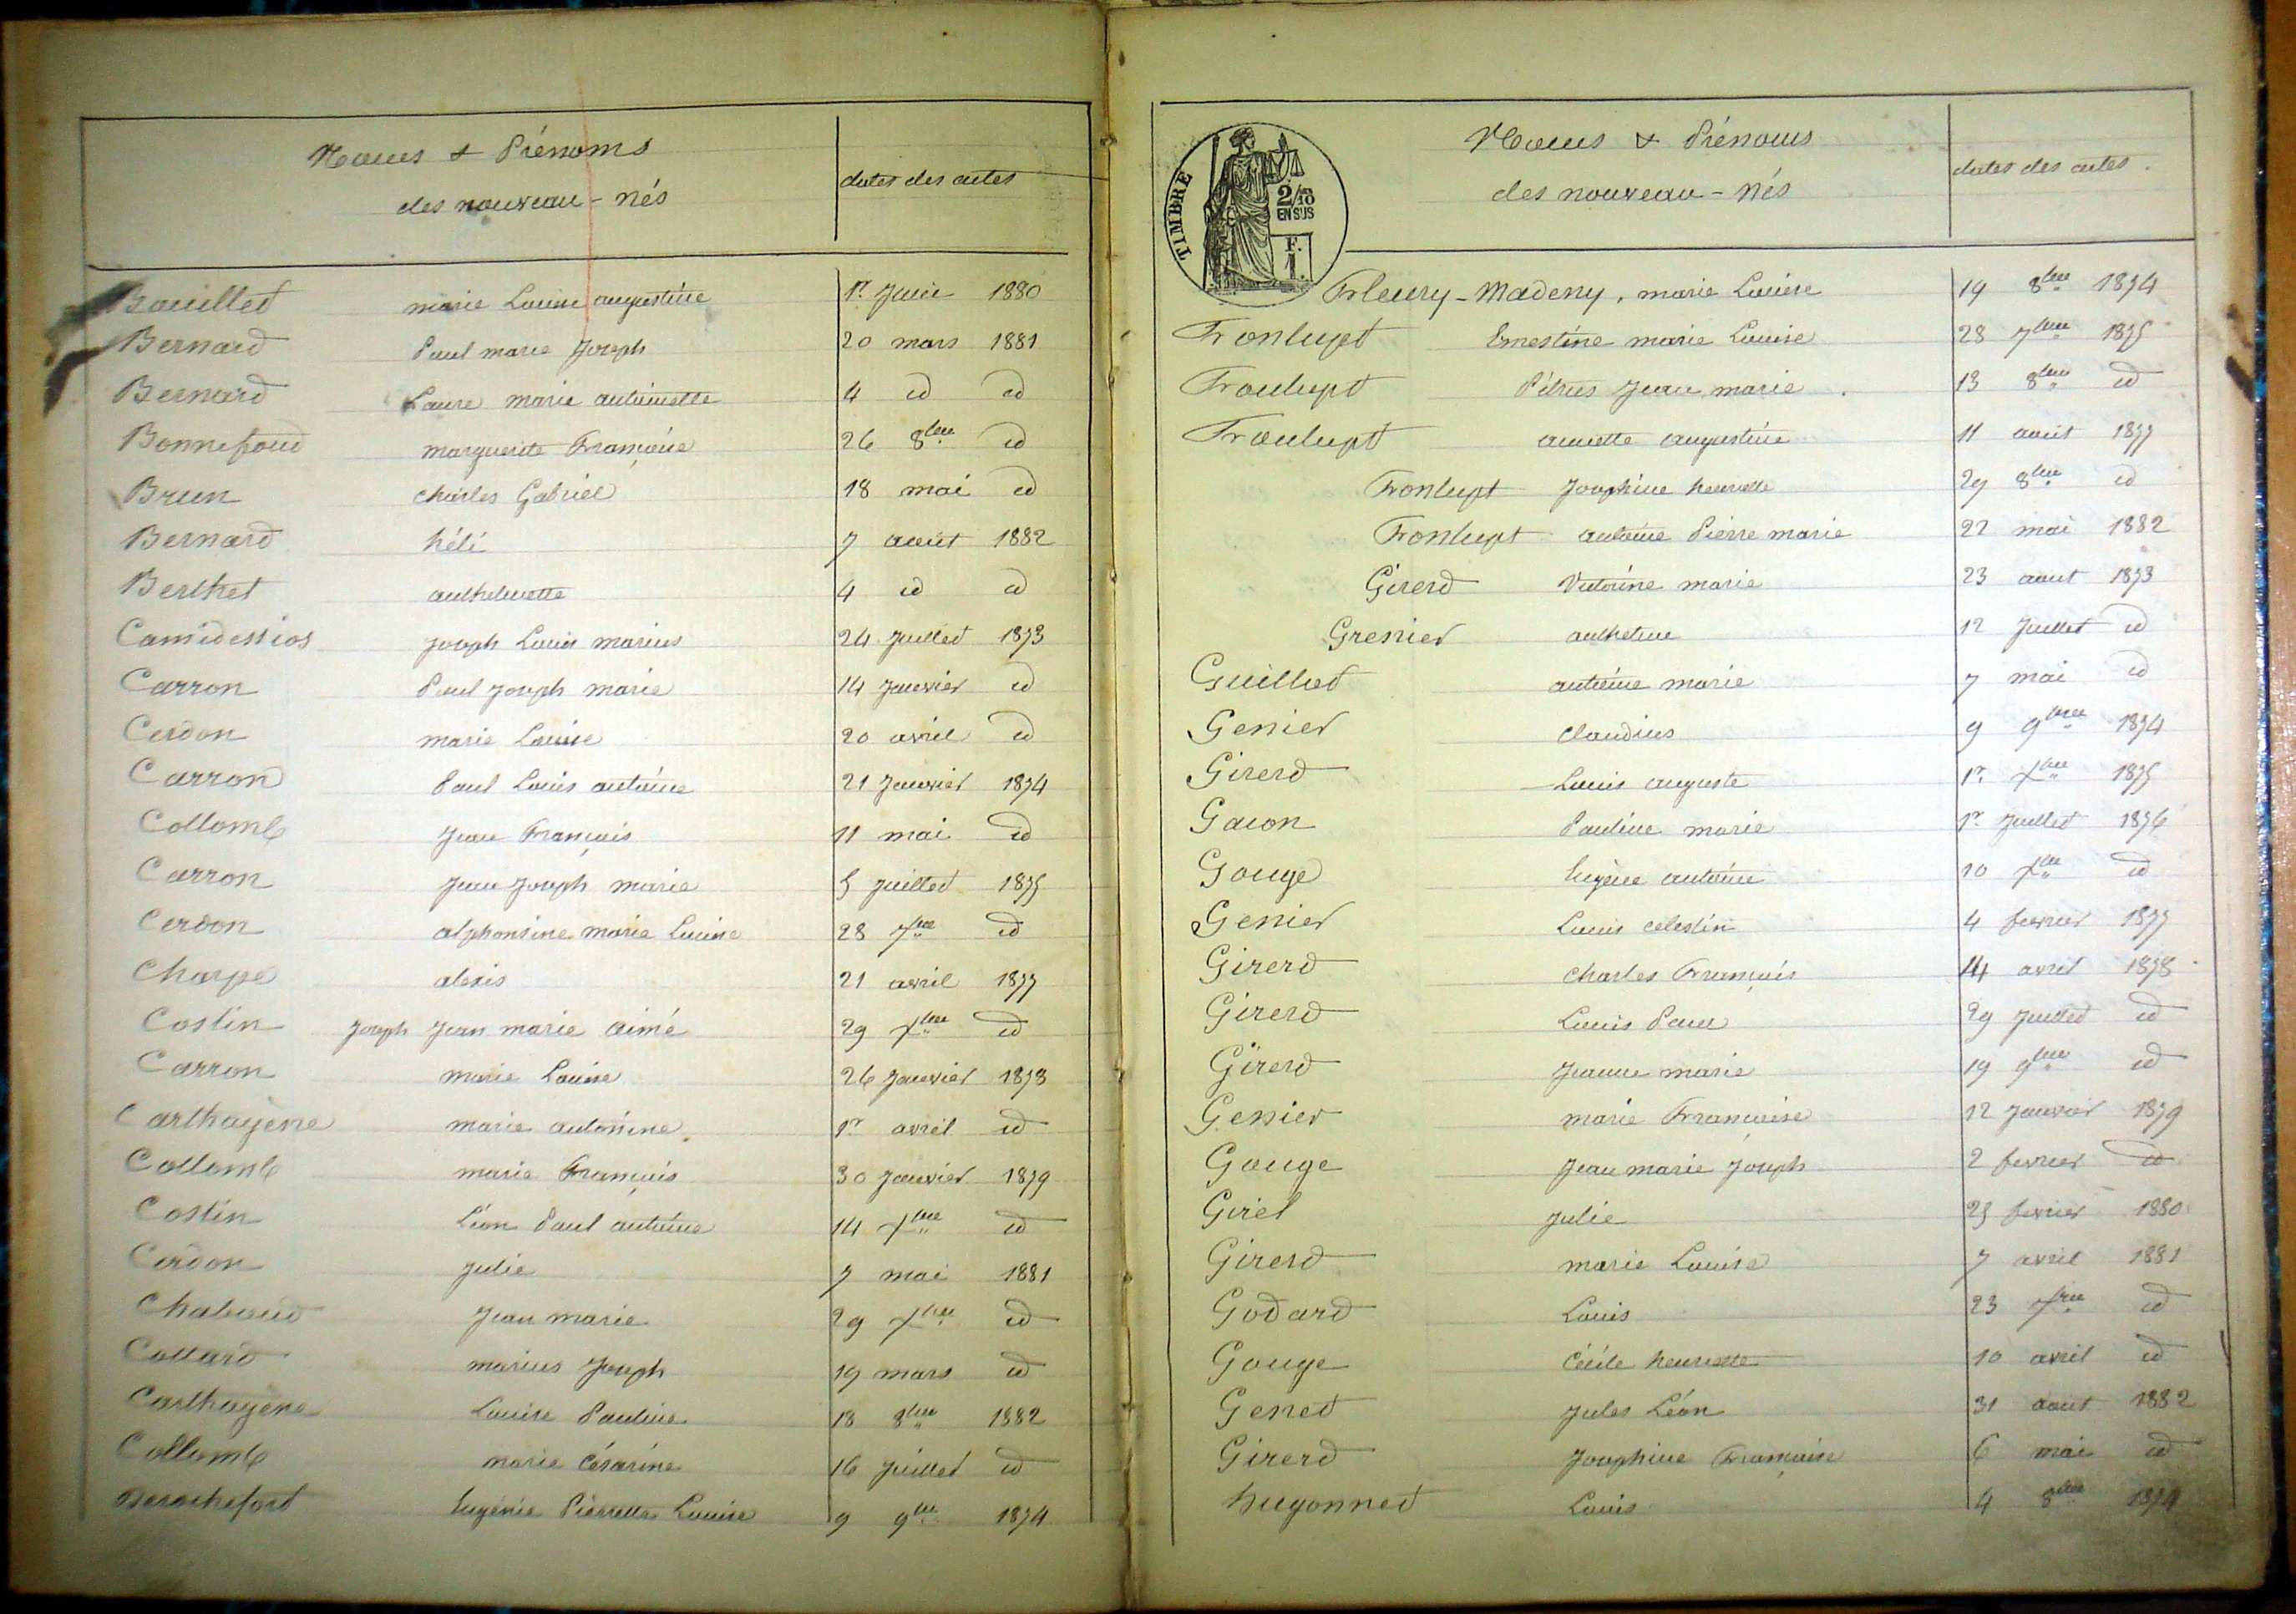 Noms & Prénoms
des nouveau-nés
dates des actes
Bouillet marie Louise augustine 1r Juin 1880
Bernard Paul marie Joseph 20 mars 1881
Bernard Laure marie antoinette 4 id id
Bonnefoud marguerite Françoise 26 8bre id
Brun charles Gabriel 18 mai id
Bernard héli 7 août 1882
Berthet anthelmette 4 id id
Camidessios Joseph Louis marius 24 Juillet 1873
Carron Paul Joseph marie 14 Janvier id
Cerdon marie Louise 20 avril id
Carron Paul Louis antoine 21 Janvier 1874
Collomb Jean François 11 mai id
Carron Jean Joseph marie 5 Juillet 1875
Cerdon alphonsine marie Louise 28 7bre id
Charpe alexis 21 avril 1877
Costin Joseph Jean marie aimé 29 Xbre id
Carron marie Louise 26 Janvier 1878
Carthagène marie antonine 1r avril id
Collomb marie François 30 Janvier 1879
Costin Léon Paul antoine 14 Xbre id
Cerdon Julie 7 mai 1881
Chaboud Jean marie 29 Xbre id
Collard marius Joseph 19 mars id
Carthagène Louise Pauline 18 8bre 1882
Collomb marie Césarine 16 Juillet id
Derochefort Eugénie Pierrette Louise 9 9bre 1874
TIMBRE
2/10
EN SUS
F.
1.
Noms & Prénoms
des nouveau-nés
dates des actes.
Fleury-Madeny, marie Louise 19 8bre 1874
Fronlupt Ernestine marie Louise 28 7bre 1875
Fronlupt Pétrus Jean marie. 13 8bre id
Fronlupt annette augustine 11 août 1877
Fronlupt Joséphine henriette 29 8bre id
Fronlupt antoine Pierre marie 22 mai 1882
Girerd Victorine marie 23 aout 1873
Grenier anthelme 12 Juillet id
Guillot antoine marie 7 mai id
Genier Claudius 9 9bre 1874
Girerd Louis auguste 1r Xbre 1875
Gacon Pauline marie 1r Juillet 1876
Gouge Eugène antoine 10 Xbre id
Genier Louis celestin 4 fevrier 1877
Girerd Charles François 14 avril 1878
Girerd Louis Paul 29 Juillet id
Girerd Jeanne marie 19 9bre id
Genier marie Françoise 12 Janvier 1879
Gouge Jean marie Joseph 2 fevrier id
Girel Julie 25 fevrier 1880
Girerd marie Louise 7 avril 1881
Godard Louis 23 7bre id
Gouge Cécile henriette 10 avril id
Genet Jules Léon 31 aout 1882
Girerd Joséphine Françoise 6 mai id
hugonnet Louis 4 8bre 1874